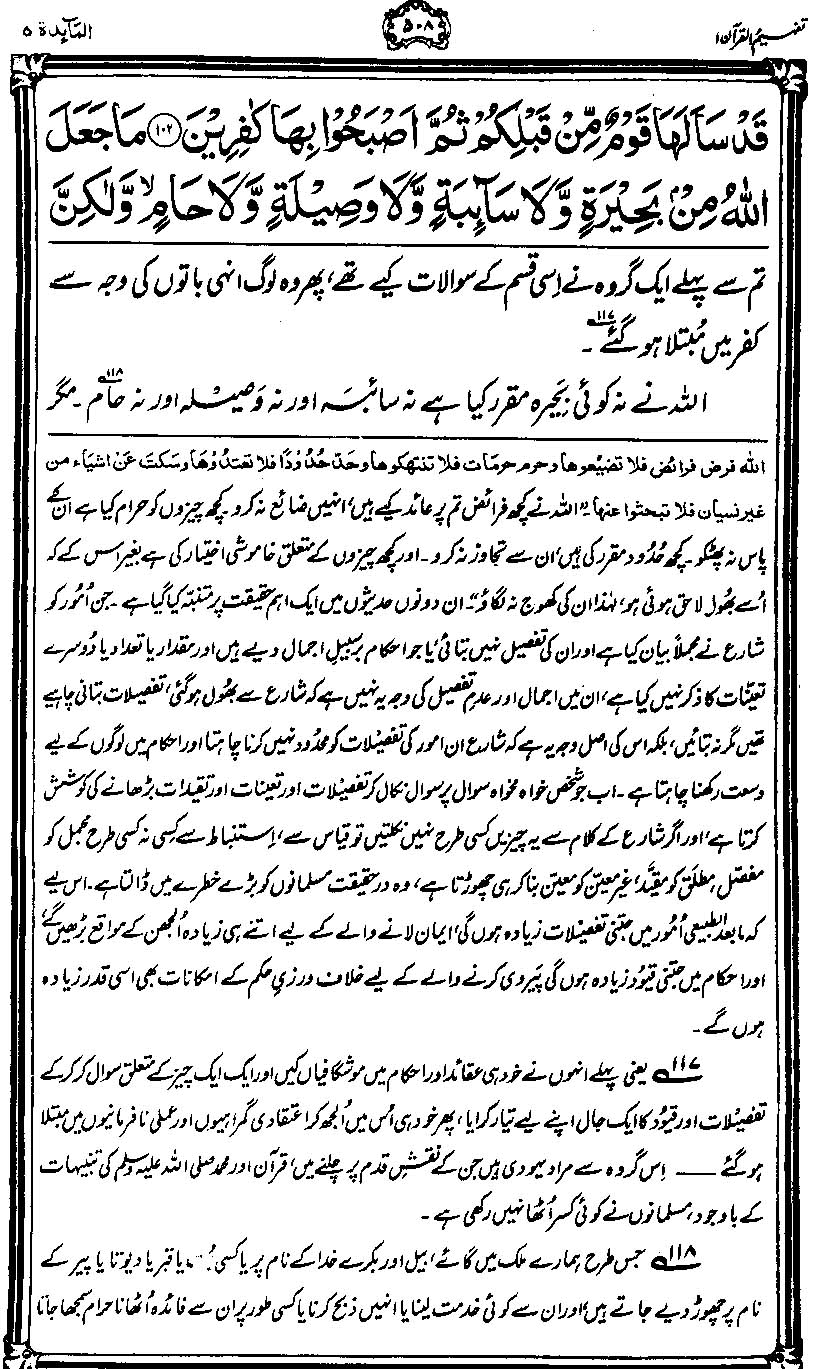 تفہیم القرآن ۱
۵۰۸
المآئدۃ ۵
قَدْ سَاَلَهَا قَوْمٌ مِّنْ قَبْلِكُمْ ثُمَّ اَصْبَحُوْا بِهَا كٰفِرِيْنَ ۝۱۰۲ مَا جَعَلَ
اللّٰهُ مِنْۢ بَحِيْرَةٍ وَّلَا سَآىِٕبَةٍ وَّلَا وَصِيْلَةٍ وَّلَا حَامٍ ۙ وَّلٰكِنَّ
تم سے پہلے ایک گروہ نے اِسی قسم کے سوالات کیے تھے، پھر وہ لوگ انہی باتوں کی وجہ سے
کفر میں مُبتلا ہو گئے۱۱۷۔
اللہ نے نہ کوئی بَحِیرہ مقرر کیا ہے نہ سائبہ اور نہ وَصِیلہ اور نہ حام۱۱۸۔ مگر
اللہ فرض فرائض فلا تضیعوھا وحرم حرمات فلا تنتھکوھا وحدّ حُدُودًا فلا تعتدُوھا وسکت عن اشیاء من
غیر نسیان فلا تبحثوا عنھا۔" اللہ نے کچھ فرائض تم پر عائد کیے ہیں، انہیں ضائع نہ کرو۔ کچھ چیزوں کو حرام کیا ہے اُن کے
پاس نہ پھٹکو۔ کچھ حُدُود مقرر کی ہیں، ان سے تجاوز نہ کرو۔ اور کچھ چیزوں کے متعلق خاموشی اختیار کی ہے بغیر اس کے کہ
اُسے بھُول لاحق ہوئی ہو، لہٰذا ان کی کھوج نہ لگاؤ"۔ ان دونوں حدیثوں میں ایک اہم حقیقت پر متنبّہ کیا گیا ہے۔ جن اُمُور کو
شارع نے مجملاً بیان کیا ہے اور ان کی تفصیل نہیں بتائی، یا جو احکام برسبیلِ اجمال دیے ہیں اور مقدار یا تعداد یا دُوسرے
تعیّنات کا ذکر نہیں کیا ہے، ان میں اجمال اور عدمِ تفصیل کی وجہ یہ نہیں ہے کہ شارع سے بھُول ہو گئی، تفصیلات بتانی چاہیے
تھیں مگر نہ بتائیں، بلکہ اس کی اصل وجہ یہ ہے کہ شارع ان امور کی تفصیلات کو محدُود نہیں کرنا چاہتا اور احکام میں لوگوں کے لیے
وسعت رکھنا چاہتا ہے۔ اب جو شخص خواہ مخواہ سوال پر سوال نکال کر تفصیلات اور تعینات اور تقیدات بڑھانے کی کوشش
کرتا ہے، اور اگر شارع کے کلام سے یہ چیزیں کسی طرح نہیں نکلتیں تو قیاس سے، اِستنباط سے کِسی نہ کسی طرح مجمل کو
مفصّل، مطلَق کو مقیَّد، غیر معیّن کو معیّن بنا کر ہی چھوڑتا ہے، وہ در حقیقت مسلمانوں کو بڑے خطرے میں ڈالتا ہے۔ اس لیے
کہ ما بعد الطبیعی اُمُور میں جتنی تفصیلات زیادہ ہوں گی، ایمان لانے والے کے لیے اتنے ہی زیادہ اُلجھن کے مواقع بڑھیں گے،
اور احکام میں جتنی قیُود زیادہ ہوں گی پیَروی کرنے والے کے لیے خلاف ورزیِ حکم کے امکانات بھی اسی قدر زیادہ
ہوں گے۔
۱۱۷ یعنی پہلے انہوں نے خود ہی عقائد اور احکام میں موشگافیاں کیں اور ایک ایک چیز کے متعلق سوال کر کر کے
تفصیلات اور قیُود کا ایک جال اپنے لیے تیار کرایا، پھر خود ہی اُس میں اُلجھ کر اعتقادی گمراہیوں اور عملی نافرمانیوں میں مبتلا
ہو گئے —— اِس گروہ سے مراد یہودی ہیں جن کے نقشِ قدم پر چلنے میں، قرآن اور محمد صلی اللہ علیہ وسلم کی تنبیہات
کے باوجود، مسلمانوں نے کوئی کسر اُٹھا نہیں رکھی ہے۔
۱۱۸ جس طرح ہمارے ملک میں گائے، بیل اور بکرے خدا کے نام پر یا کسی یا قبر یا دیوتا یا پیر کے
نام پر چھوڑ دیے جاتے ہیں، اور ان سے کوئی خدمت لینا یا انہیں ذبح کرنا یا کسی طور پر ان سے فائدہ اُٹھانا حرام سمجھا جاتا